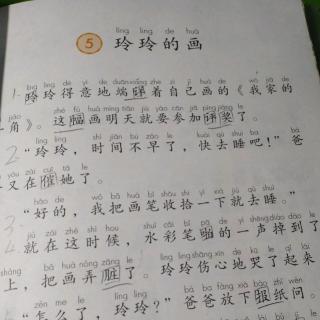 líng líng de huà
5 玲玲的画
líng líng dé yì de duān xiáng zhe zì jǐ huà de
1. 玲玲得意地端详着自己画的《我家的
jiǎo zhè fú huà míng tiān jiù yào cān jiā píng jiǎng le
一角》。这幅画明天就要参加评奖了。
líng líng shí jiān bù zǎo le kuài qù shuì ba
2 “玲玲,时间不早了,快去睡吧!”爸
yòu zài cuī tā le
又在催她了。
hǎo de wǒ bǎ huà bǐ shōu shi yí xià jiù qù shuì
3 “好的,我把画笔收拾一下就去睡。”
jiù zài zhè shí hou shuǐ cǎi bǐ pā de yì shēng diào dào le
4 就在这时候,水彩笔啪的一声掉到了
shàng bǎ huà nòng zāng le líng líng shāng xīn de kū le qǐ lái
上,把画弄脏了。玲玲伤心地哭了起来
zěn me le líng líng bà ba fàng xià bào zhǐ wèn
5 “怎么了,玲玲?”爸爸放下报纸问。